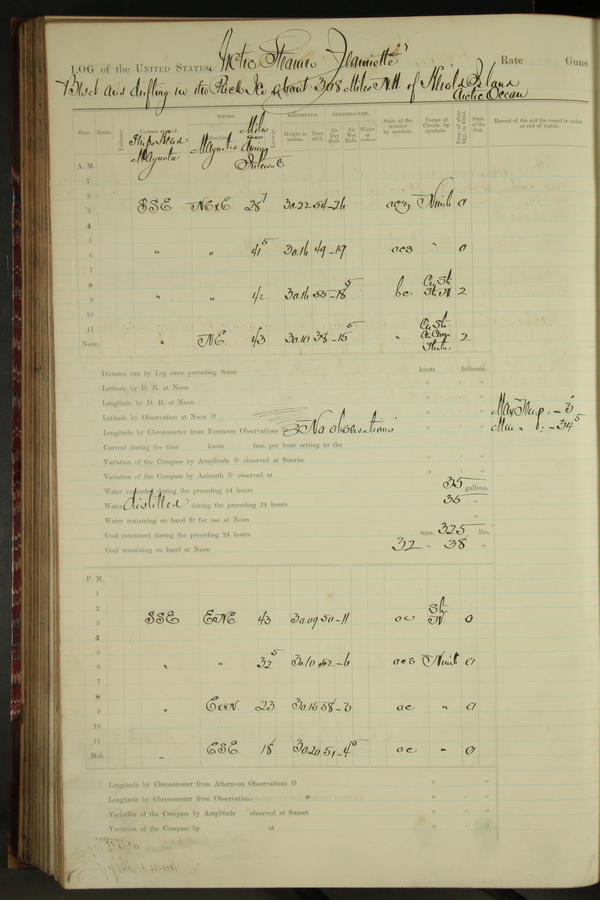 LOG of the UNITED STATES Arctic Steamer "Jeannette" Rate Guns
Beset and drifting in the Pack Ice about 308 Miles N.W. of Herald Island
Arctic Ocean
WINDS. BAROMETER. TEMPERATURE.
Hour. Knots. Ship's Head Magnetic Magnetic Height in inches. Ther. att'd. Air Dry Bulb. Air Wet Bulb. Water at surface. State of the weather by symbols. Forms of Clouds by symbols. State of the Sea. Record of the sail the vessel is under at end of watch.
A. M.
1
2
3 SSE NExE 28 30.22 54 -26 0
4
5
6 " " 41 5 30.16 49 -19 " 0
7
8
9 " " 42 30.16 53 -18 5 bc Cu. St. 2
10
11
Noon. " NE 43 30.10 38 -15 5 " Cu. St. 2
Distance run by Log since preceding Noon knots fathoms.
Latitude by D. R. at Noon
Longitude by D. R. at Noon
Latitude by Observation at Noon
Longitude by Chronometer from Forenoon Observations No observations
Max Temp. -3
Min " -34 5
Current during the time knots fms. per hour setting to the
Variation of the Compass by Amplitude observed at Sunrise
Variation of the Compass by Azimuth observed at
Water expended during the preceding 24 hours 35 gallons.
Water distilled during the preceding 24 hours 35 "
Water remaining on hand fit for use at Noon "
Coal consumed during the preceding 24 hours tons. 325 lbs.
Coal remaining on hand at Noon 32 " 38 "
P. M.
1
2
3 SSE ENE 43 30.09 50 -11 oc St. N. 0
4
5
6 " " 32 5 30.10 52 -6 ocs 0
7
8
9 " ExN. 23 30.15 58 -3 oc " 0
10
11
Mid. " ESE 18 30.20 51 -4 5 oc " 0
Longitude by Chronometer from Afternoon Observations
Longitude by Chronometer from Observations
Variation of the Compass by Amplitude observed at Sunset
Variation of the Compass by at